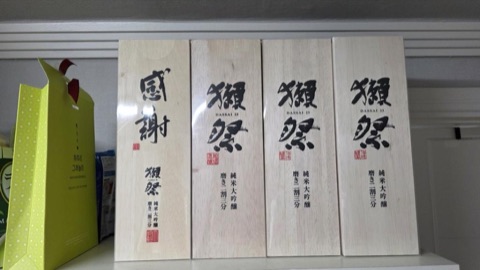 感謝
獺祭
純米大吟醸
磨き二割三分
獺祭
DASSAI 23
純米大吟醸
磨き二割三分
獺祭
DASSAI 23
純米大吟醸
磨き二割三分
獺祭
DASSAI 23
純米大吟醸
磨き二割三分